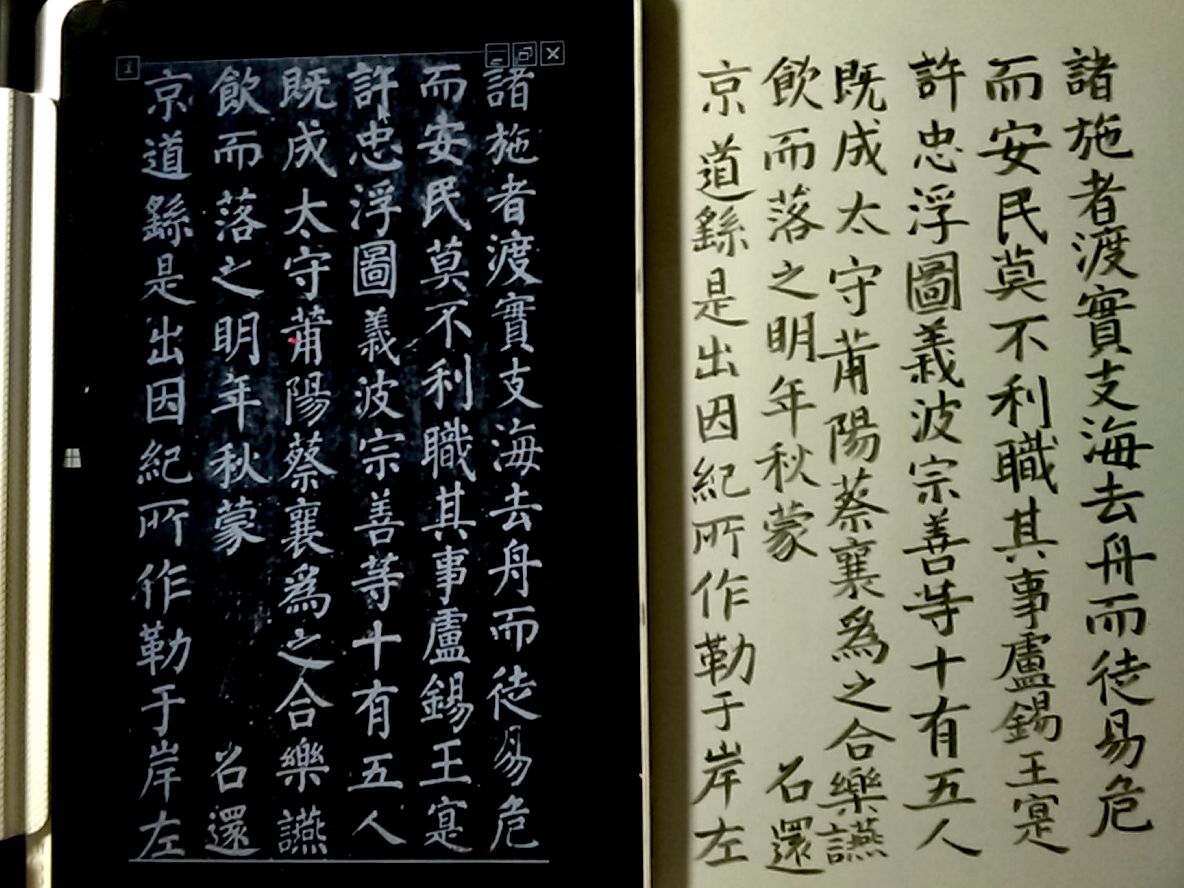 諸施者渡實支海去舟而徒易危
而安民莫不利職其事盧錫王寔
許忠浮圖義波宗善等十有五人
既成太守莆陽蔡襄爲之合樂讌
飲而落之明年秋蒙 召還
京道繇是出因紀所作勒于岸左
諸施者渡實支海去舟而徒易危
而安民莫不利職其事盧錫王寔
許忠浮圖義波宗善等十有五人
既成太守莆陽蔡襄爲之合樂讌
飲而落之明年秋蒙 召還
京道繇是出因紀所作勒于岸左